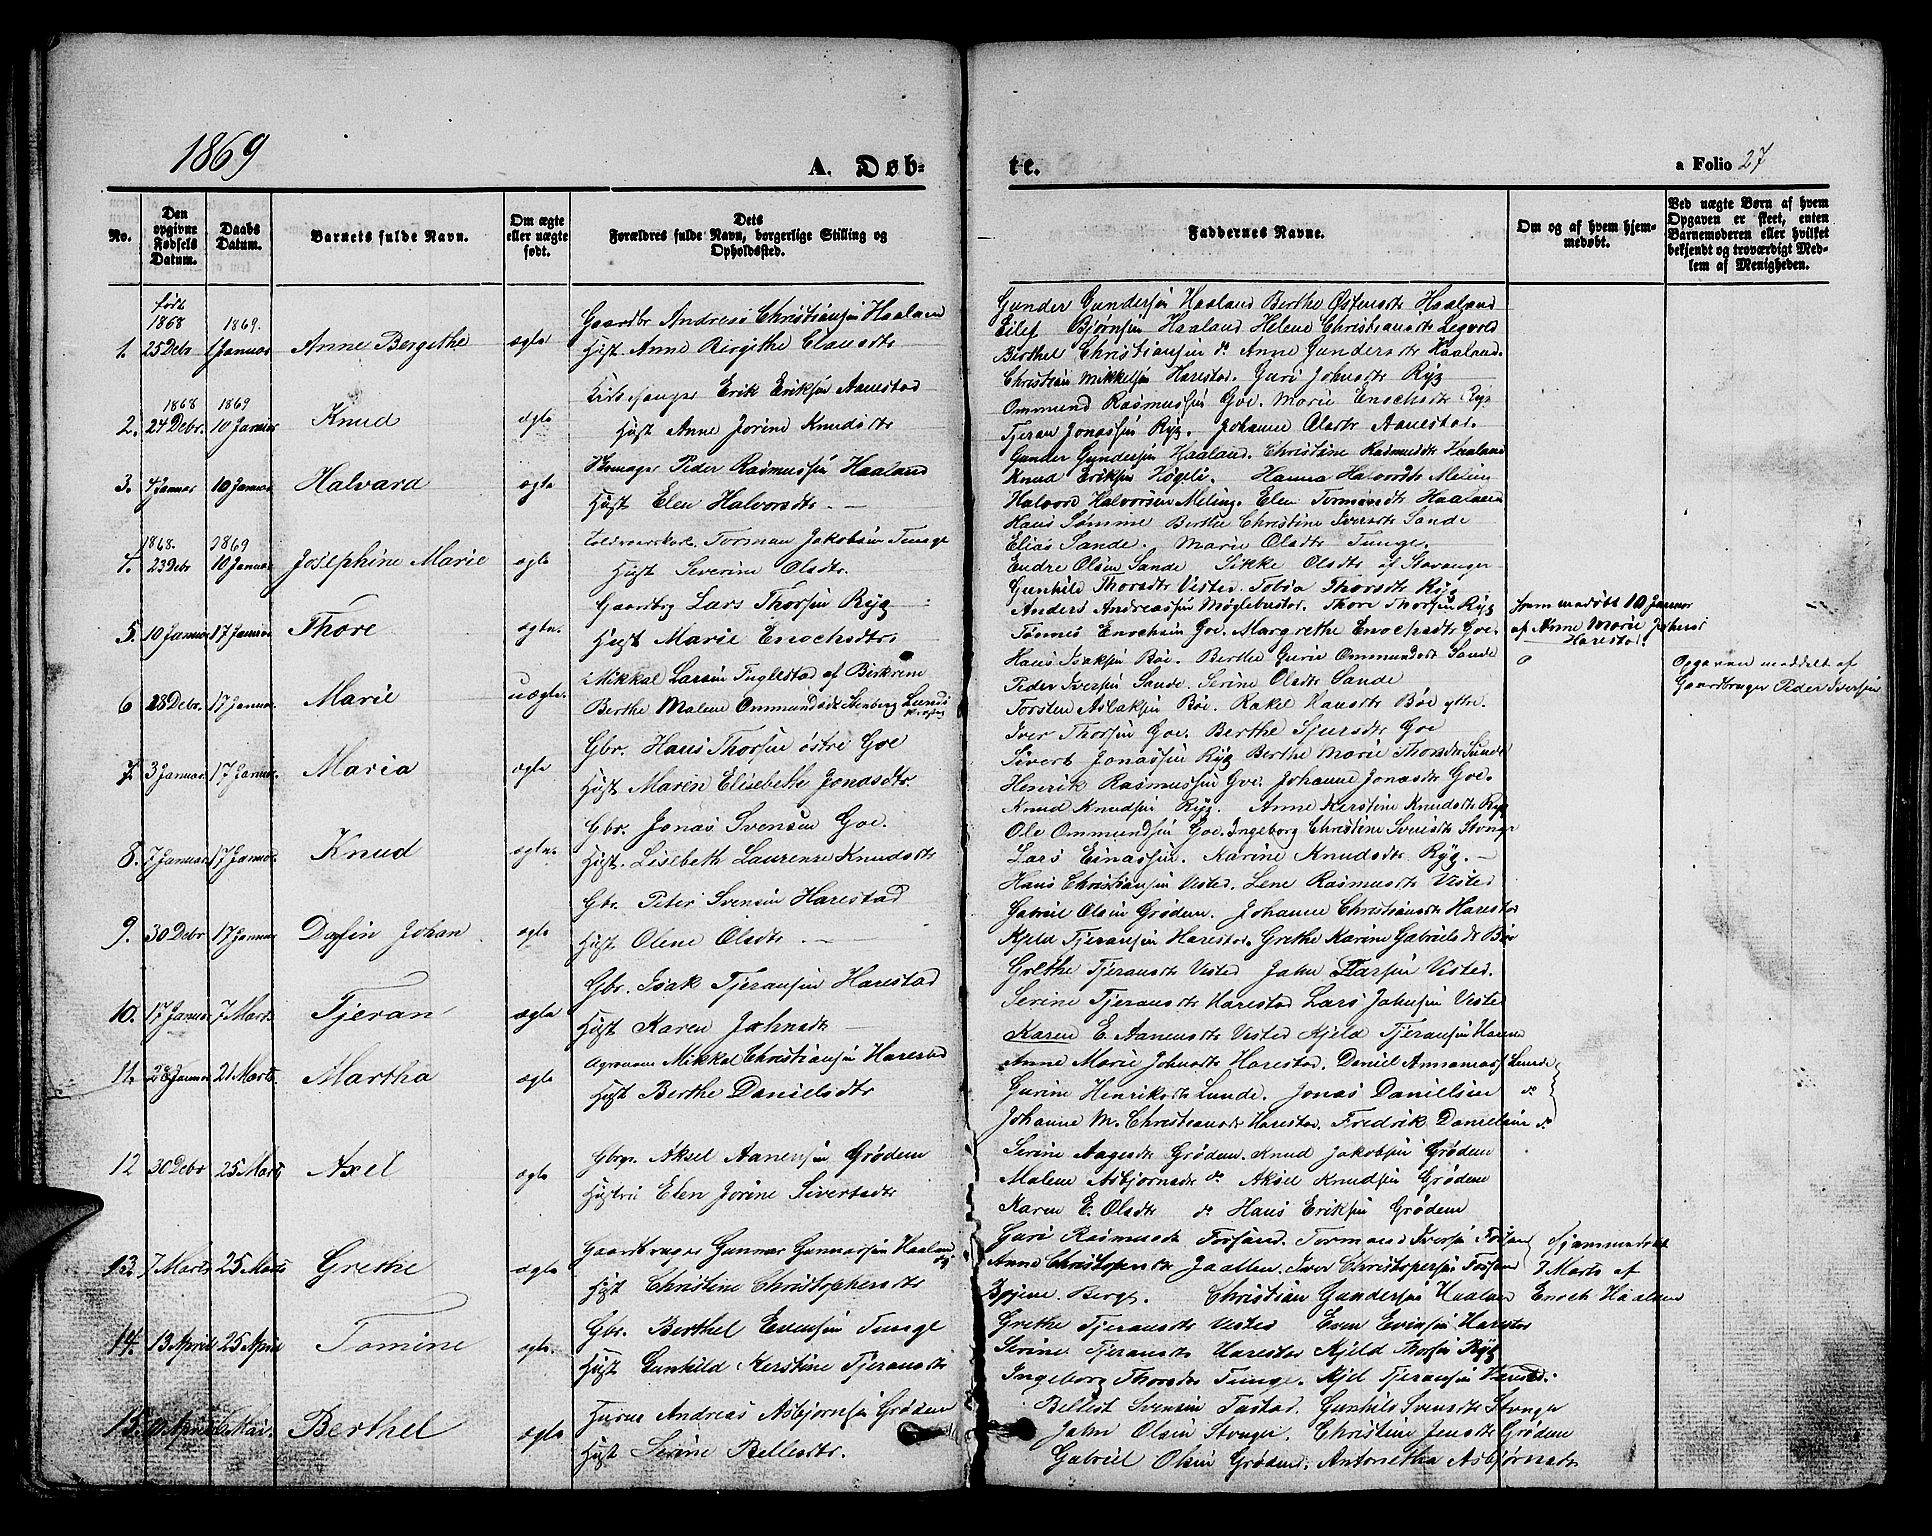 1869
A. Døb-
te.
a Folio 27
No.
Den opgivne Fødsels Datum.
Daabs Datum.
Barnets fulde Navn.
Om ægte eller uægte født.
Dets Forældres fulde Navn, borgerlige Stilling og Opholdssted.
Faddernes Navne.
Om og af hvem hjemmedøbt.
Ved uægte Børn af hvem Opgaven er skeet, enten Barnemoderen eller hvilket bekjendt og troværdigt Medlem af Menigheden.
født 1868 1869.
1. 25 Debr 1 Januar Anne Bergithe ægte
Gaardbr Andreas Christiansen Haaland
Hust. Anne Birgithe Clausdtr
Gunder Gundersen Haaland Berthe Ostensdtr Haaland
Eilef Bjørnsen Haaland Helene Christiansdtr Legvold
Berthel Christiansen do Anne Gundersdtr Haaland.
1868 1869
2. 24 Debr. 10 Januar Knud ægte
Kirkesanger Erik Eriksen Aanestad
Hust Anne Jorine Knudsdtr
Christian Mikkelsen Harestad. Guri Johnsdtr Ryg
Ommund Rasmussen Goe. Marie Enochsdtr Ryg
Tjeran Jonassen Ryg. Johanne Olsdtr Aanestad.
3. 4 Januar 10 Januar Halvard ægte
Peder Rasmussen Haaland
Hust Elen Halvorsdtr
Gunder Gundersen Haaland. Christine Rasmusdtr Haaland
Knud Eriksen Høgeli. Hanna Halvordtr Meling
Halvord Halvorsen Meling. Elen Tormondtr Haaland
1868. 1869
4. 23 Debr 10 Januar Josephine Marie ægte
Torman Jakobsen Tunge
Hust Severine Olsdtr.
Hans Sømme Berthe Christine Iversdtr Sande
Elias Sande. Marie Olsdtr Tunge.
Endre Olsen Sande Sikke Olsdtr af Stavanger
5. 10 Januar 17 Januar Thore ægte.
Gaardbrg Lars Thorsen Ryg
Hust Marie Enochsdtr
Gunhild Thorsdtr Vested. Tobia Thorsdtr Ryg
Anders Andreassen Møglebustad. Thore Thorsen Ryg
Tønnes Enochsen Goe. Margrethe Enochsdtr Goe.
hjemmedøbt 10 Januar
af Anne Marie Johnsd
Harestad.
6 28 Debr. 17 Januar. Marie uægte.
Mikkal Larsen Fuglestad af Birkrem
Berthe Malene Ommundsdtr Stenberg Lunds
Hans Isaksen Bøe. Berthe Gurie Ommundsdtr Sande
Peder Iversen Sande. Serine Olsdtr Sande
Torsten Asbaksen Bøe. Rakel Hansdtr Bøe ytre.
Opgaven meddelt af
Gaardbruger Peder Iversen
7. 3 Januar. 17 Januar. Maria ægte
Gbr. Hans Thorsen østre Goe
Hust Maren Elisebeth Jonasdtr.
Iver Thorsen Goe. Berthe Sjursdtr Goe
Sivert Jonassen Ryg Berthe Marie Thorsdtr Sande
Henrik Rasmussen Goe. Johanne Jonasdtr Goe.
8. 7 Januar. 17 Januar. Knud ægte.
Gbr. Jonas Svensen Goe.
Hust. Lisebeth Laurense Knudsdtr
Knud Knudsen Ryg. Anne Kerstine Knudsdtr Ryg
Ole Ommundsen Goe. Ingeborg Christine Svensdtr Stonge
Lars Einassen. Karine Knudsdtr Ryg.
9. 30 Debr 17 Januar Dagfin Johan ægte
Gbr. Peter Svensen Harestad
Hust Olene Olsdtr
Hans Christiansen Vested. Lene Rasmusdtr Vested
Gabriel Olsen Grødem. Johanne Christiansdtr Harestad
Kjeld Tjeransen Harestad. Grethe Karine Gabrielsdtr Bøe
10. 17 Januar 7 Marts Tjeran ægte
Gbr. Isak Tjeransen Harestad
Hust Karen Johnsdtr
Grethe Tjeransdtr Vested John Larsen Vested.
Serine Tjeransdtr Harestad Lars Johnsen Visted
Karen E. Aanensdtr Vested Kjeld Tjeransen
11. 28 Januar 21 Marts. Martha ægte
Mikkal Christiansen Harestad
Hust Berthe Danielsdtr
Anne Marie Johnsdtr Harestad. Daniel Lunde
Gurine Henriksdtr Lunde. Jonas Danielsen do
Johanne M. Christiansdtr Harestad. Fredrik Danielsen do
12 30 Debr 25 Marts Axel ægte
Gbrgr Aksel Aanensen Grødem
Hustru Elen Jorine Sivertsdtr
Serine Aagesdtr Grødem. Knud Jakobsen Grødem
Malene Asbjørnsdtr do Aksel Knudsen Grødem
Karen E. Olsdtr do Hans Eriksen Grødem
13. 7 Marts 25 Marts Grethe ægte
Gaardbruger Gunnar Gunnarsen Haaland
og
Hust Christine Christophersdtr
Guri Rasmusdtr Forsand. Tormod Iversen Forsand
Anne Christophersdtr Jaatten. Iver Christophersen Forsand
Berge. Christian Gundersen Haaland
hjemmedøbt
7 Marts af
Enoch Haaland
14. 13 April 25 April Tomine ægte.
Gbr. Berthel Evensen Tunge
Hust Gunhild Kerstine Tjeransdtr
Grethe Tjeransdtr Vested Even Evensen Harestad
Serine Tjeransdtr Harestad Kjeld Thorsen Ryg
Ingeborg Thorsdtr Tunge. Kjel Tjeransen
15. April 6 Mai. Berthel ægte
Andreas Asbjørnsen Grødem
Hust Serine Bellesdtr.
Bellest Svensen Tastad. Gunhild Svensdtr Stonge
John Olsen Stonge. Christine Jensdtr Grødem
Gabriel Olsen Grødem. Antonetha Asbjørnsdtr